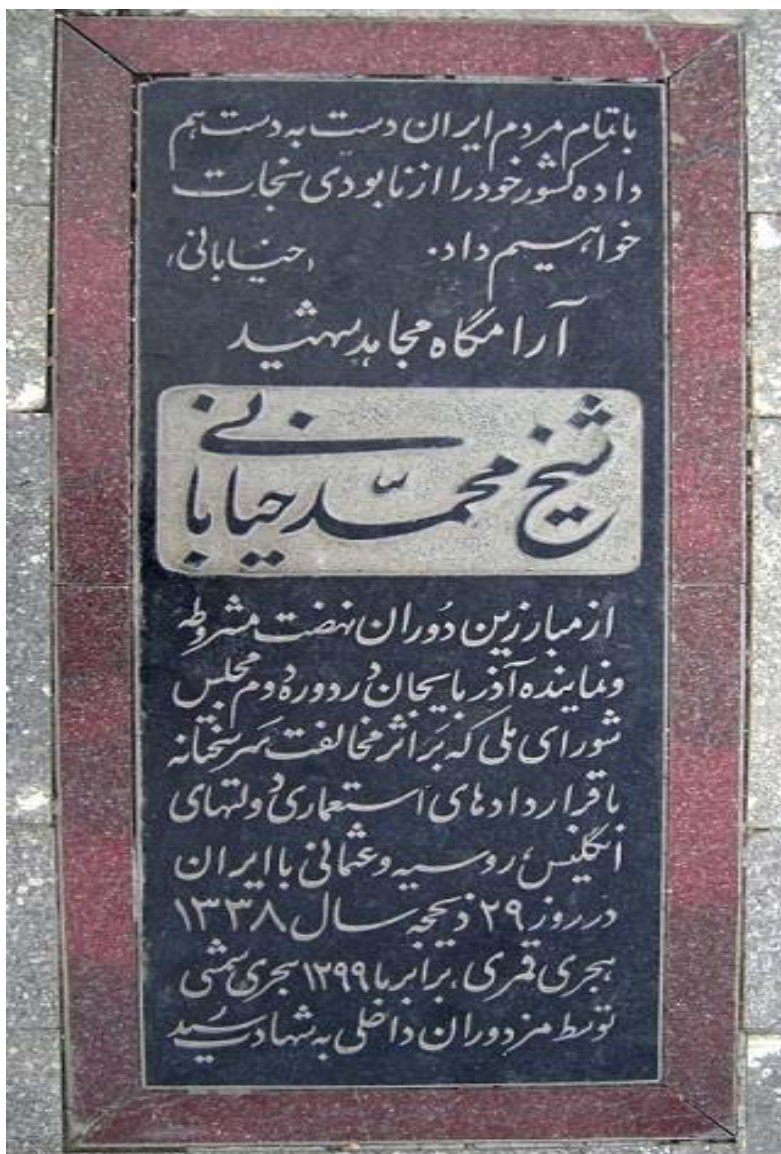 با تمام مردم ایران دست به دست هم
داده کشور خود را از نابودی نجات
خواهیم داد. «خیابانی»
آرامگاه مجاهد شهید
شیخ محمّد خیابانی
از مبارزین دُوران نهضت مشروطه
و نماینده آذربایجان در دوره دوم مجلس
شورای ملی که بَر اثر مخالفت سَرسختانه
با قراردادهای استعماری دولتهای
انگلیس، روسیه و عثمانی با ایران
در روز ۲۹ ذیحجه سال ۱۳۳۸
هجری قمری، برابر با ۱۲۹۹ هجری شمسی
توسط مزدوران داخلی به شهادت رسُید